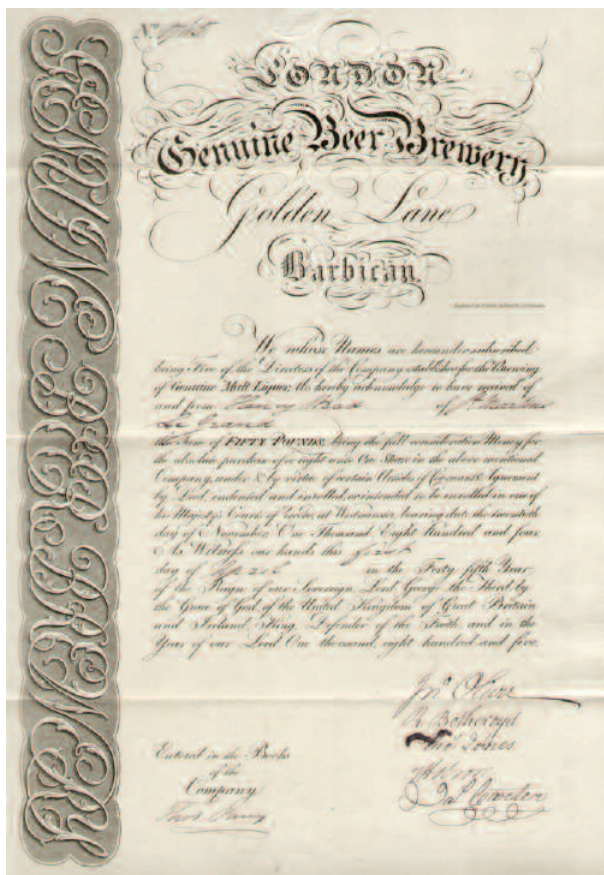 No.
LONDON
Genuine Beer Brewery,
Golden Lane
Barbican.
GENUINE BEER BREWERY
We whose Names are hereunder subscribed
being Five of the Directors of the Company established for the Brewing
of Genuine Malt Liquor, do hereby acknowledge to have received of
and from Henry of St. Martins
Le Grand
the Sum of FIFTY POUNDS, being the full consideration Money for
the absolute purchase of a right unto One Share in the above mentioned
Company, under & by virtue of certain Articles of Covenant & Agreement
by Deed, indented and inrolled, or intended to be inrolled in one of
his Majesty's Courts of Record, at Westminster, bearing date the twentieth
day of November One Thousand Eight Hundred and four
As Witness our hands this first
day of April in the Forty fifth Year
of the Reign of our Sovereign Lord George the Third by
the Grace of God, of the United Kingdom of Great Britain
and Ireland, King, Defender of the Faith and in the
Year of our Lord One thousand, eight hundred and five.
R Botheroyd
Jones
Entered in the Books
of the
Company
Thos.